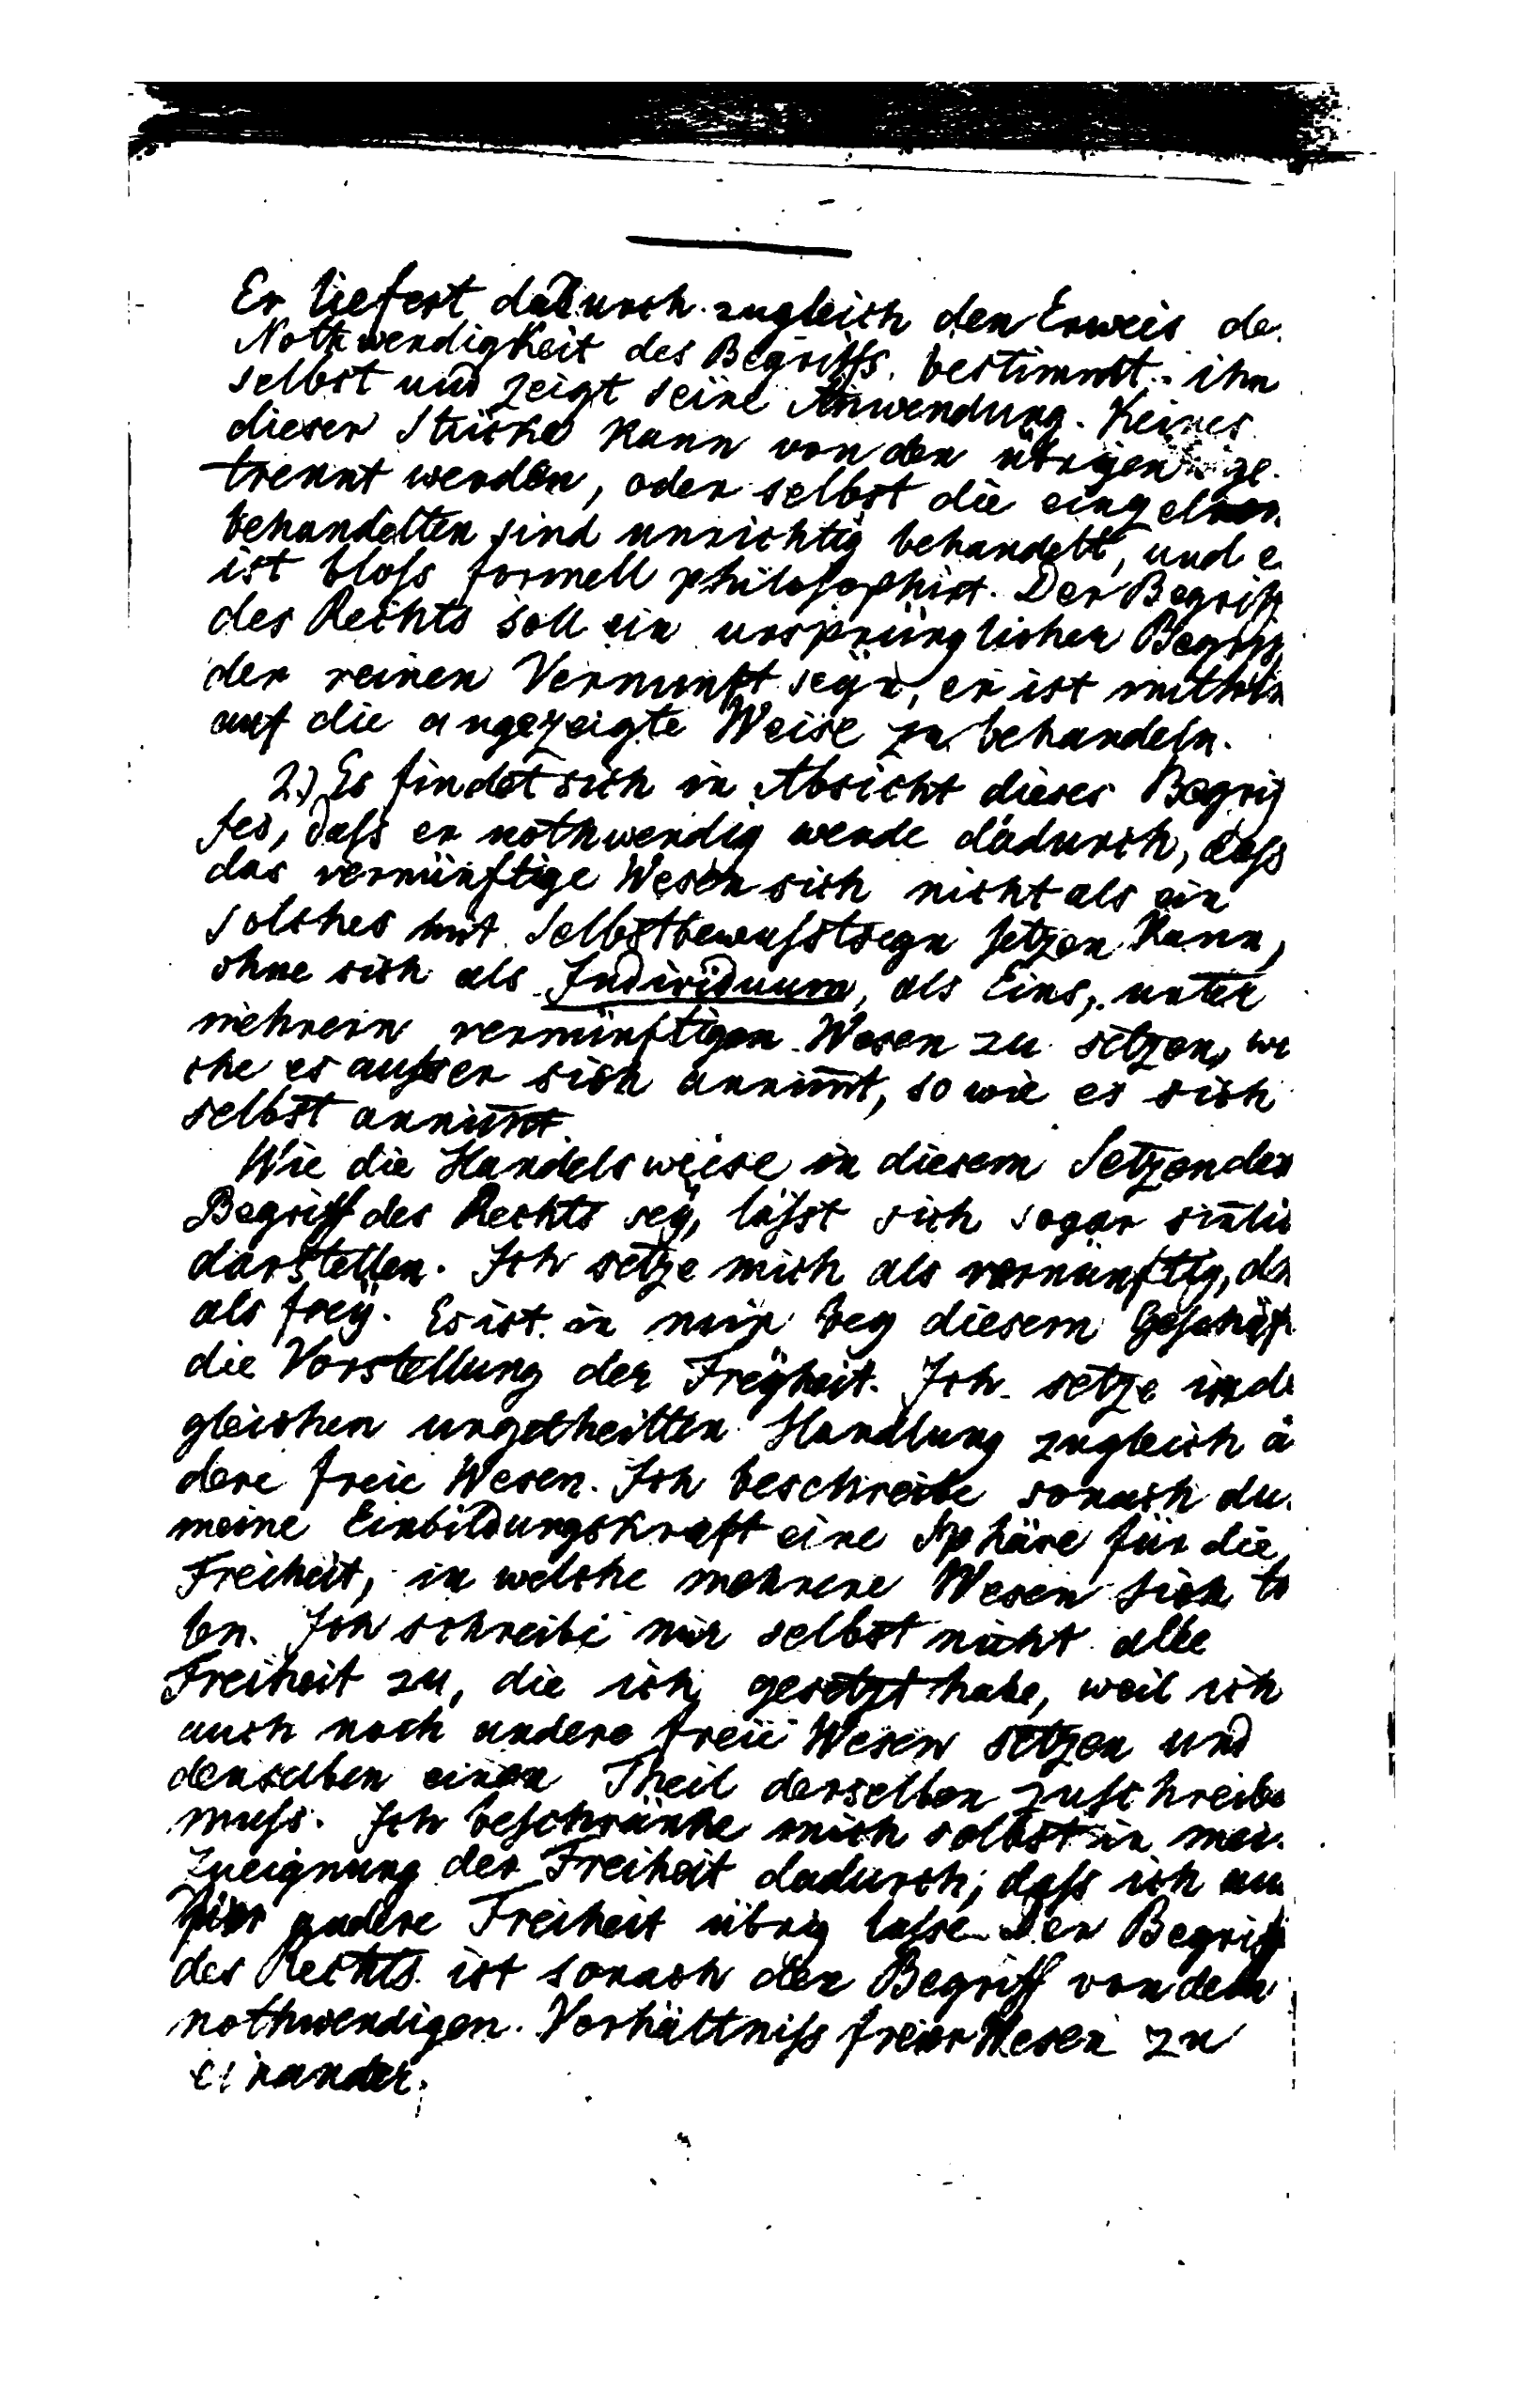 Er liefert dadurch zugleich den Erweis de
Nothwendigkeit des Begriffs, bestimmt ihn
selbst und zeigt seine Anwendung. Keines
dieser Stücke kann von den übrigen ge-
trennt werden, oder selbst die einzelnen
behandelten sind unrichtig behandelt, und e
ist bloſs formell philoſophirt. Der Begriff
des Rechts soll ein ursprünglicher Begriff
der reinen Vernunft seyn, er ist mithin
auf die angezeigte Weise zu behandeln.
2.) Es findet sich in Absicht dieses Begrif
fes, daſs er nothwendig werde dadurch, daſs
das vernünftige Wesen sich nicht als ein
solches mit Selbstbewuſstseyn ſetzen kann,
ohne sich als Individuum, als Eins, unter
mehrern vernünftigen Wesen zu setzen, we
che es auſser sich annim̄t, so wie es sich
selbst annim̄t.
Wie die Handelsweise in diesem Setzen des
Begriff des Rechts seÿ, läſst sich sogar sin̄lic
darstellen. Ich setze mich als vernünftig, d.h
als freÿ. Es ist in mir bey diesem Geſchäf
die Vorstellung der Freÿheit. Ich setze in de
gleichen ungetheilten Handlung zugleich a
dere freie Wesen. Ich beschreibe sonach du
meine Einbildungskraft eine Sphäre für die
Freiheit, in welche mehrere Wesen sich
len. Ich schreibe mir selbst nicht alle
Freiheit zu, die ich gesetzt habe, weil ich
auch noch andere freie Wesen setzen und
denselben einen Theil derselben zuſchreibe
muſs. Ich beſchränke mich selbst in mei
Zueignung der Freiheit dadurch, daſs ich au
für andere Freiheit übrig laſse. Der Begriff
des Rechts ist sonach der Begriff von dem
nothwendigen Verhältniſs freier Wesen zu
einander.